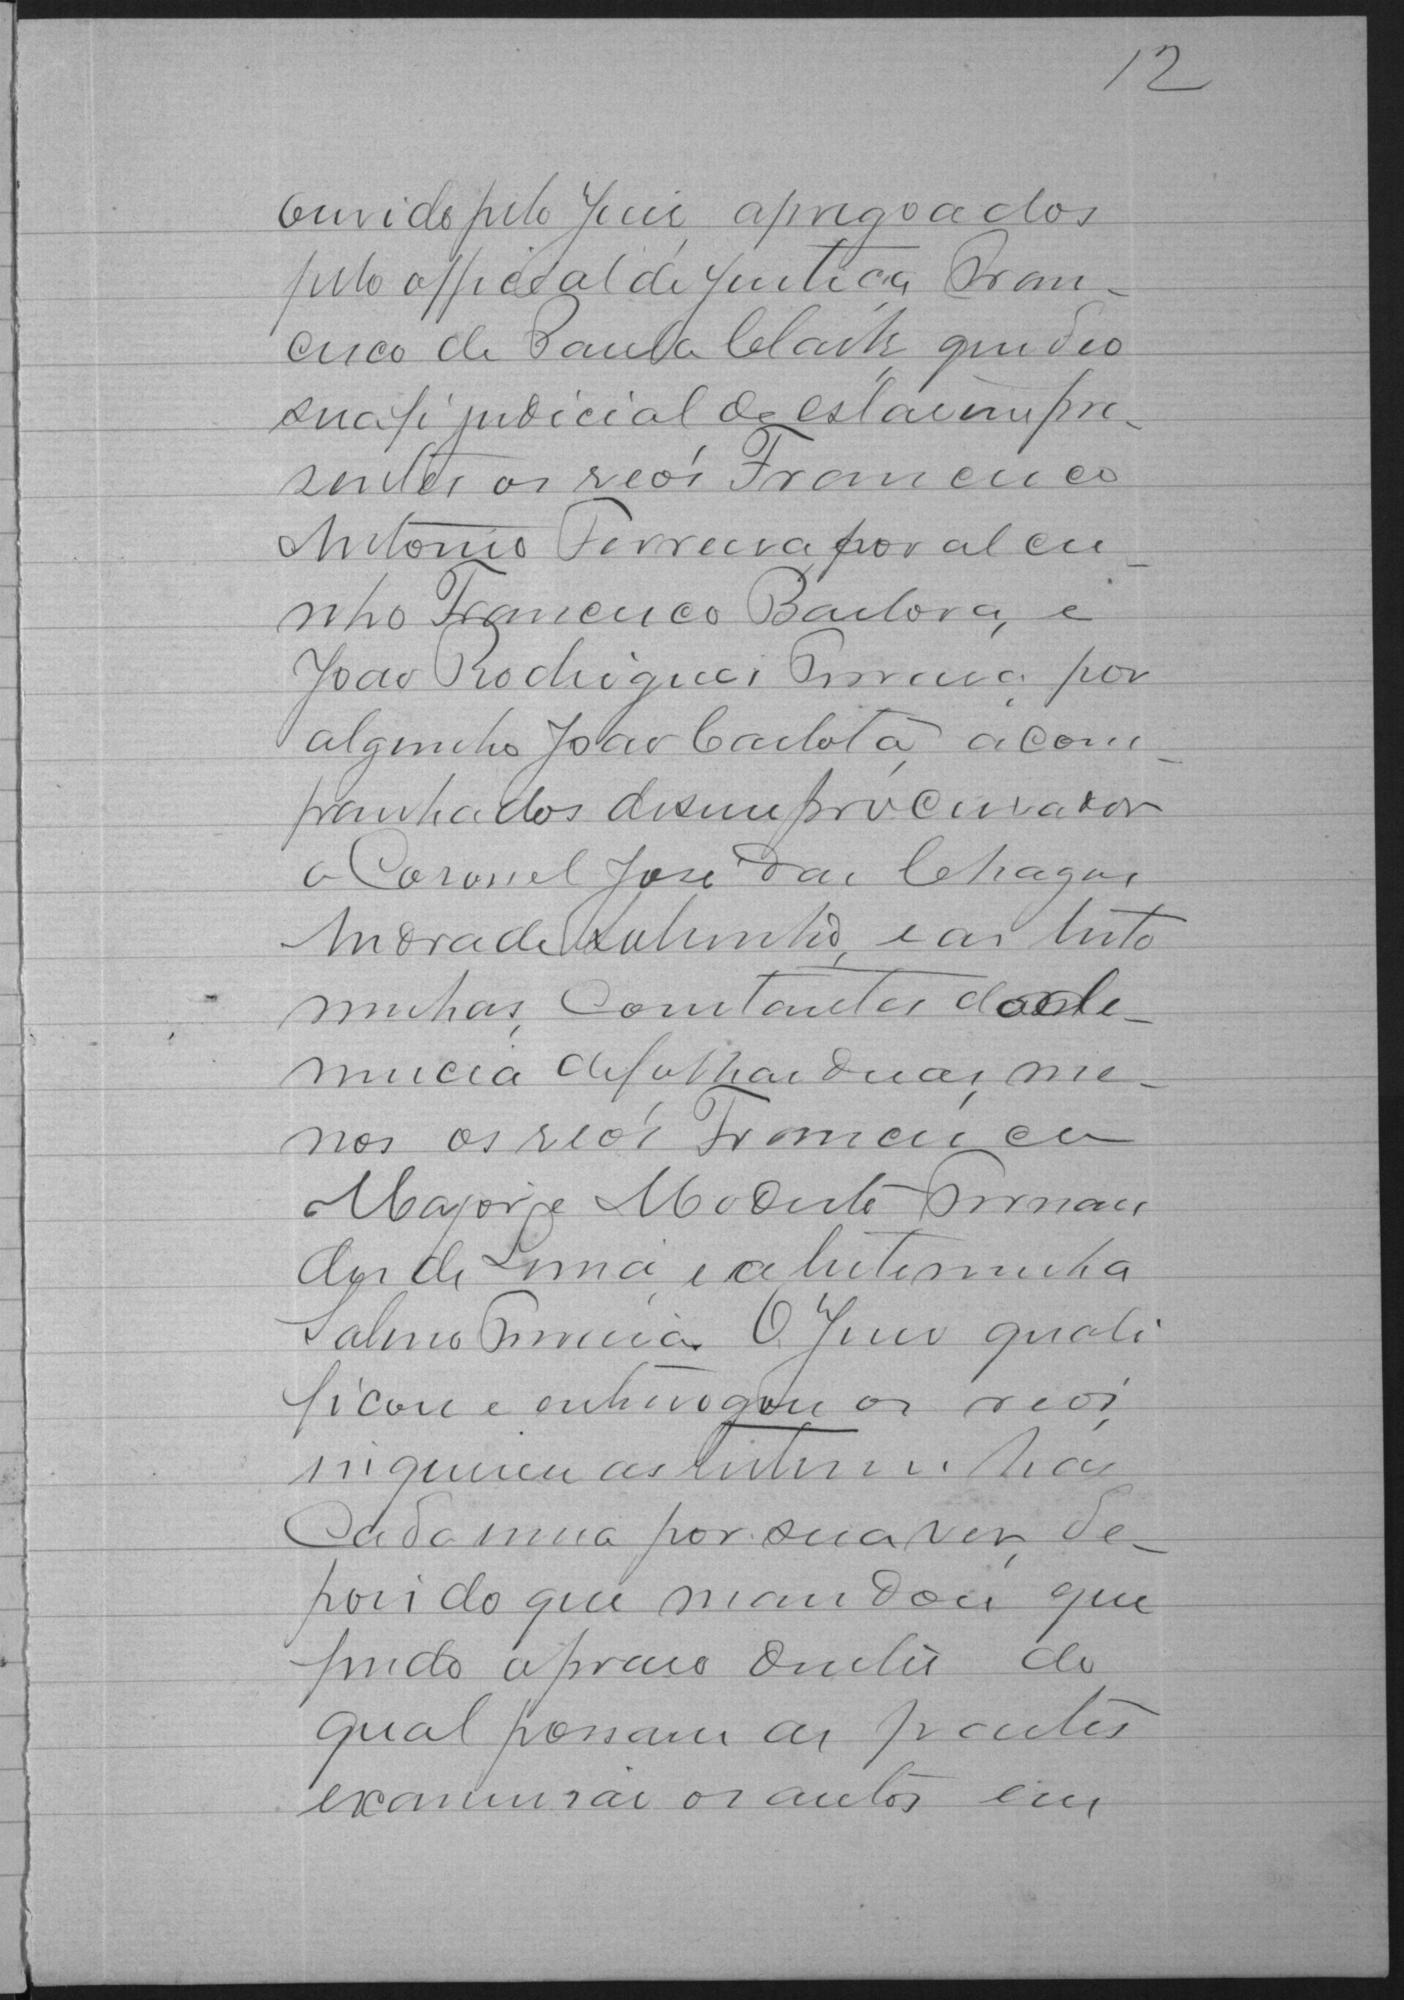 12
ouvido pelo Juiz, apregoados
pelo official de justiça Fran-
cisco de Paula Clark, que deo
sua fé judicial de estarem pre-
sentes os reós Francisco
Antonio Ferreira, por alcu-
nho Francisco Barbosa, e
João Rodrigues Ferreira, por
algunho João Carlota, acom-
panhados de seu procurador
o Coronel José das Chagas
Andrade Sobrinho, e as teste
munhas, constantes da de-
nuncia de folhas duas, me-
nos os reós Francisca
Major, e Modesto Fernan
des de Lima, e a testemunha
Salino Ferreira. O Juiz quali
ficou e interrogou os reós,
inquiriu as testemunhas
Cada uma por sua vez, de-
pois do que mandou que
findo o praso dentro do
qual possam as partes
examinar os autos em